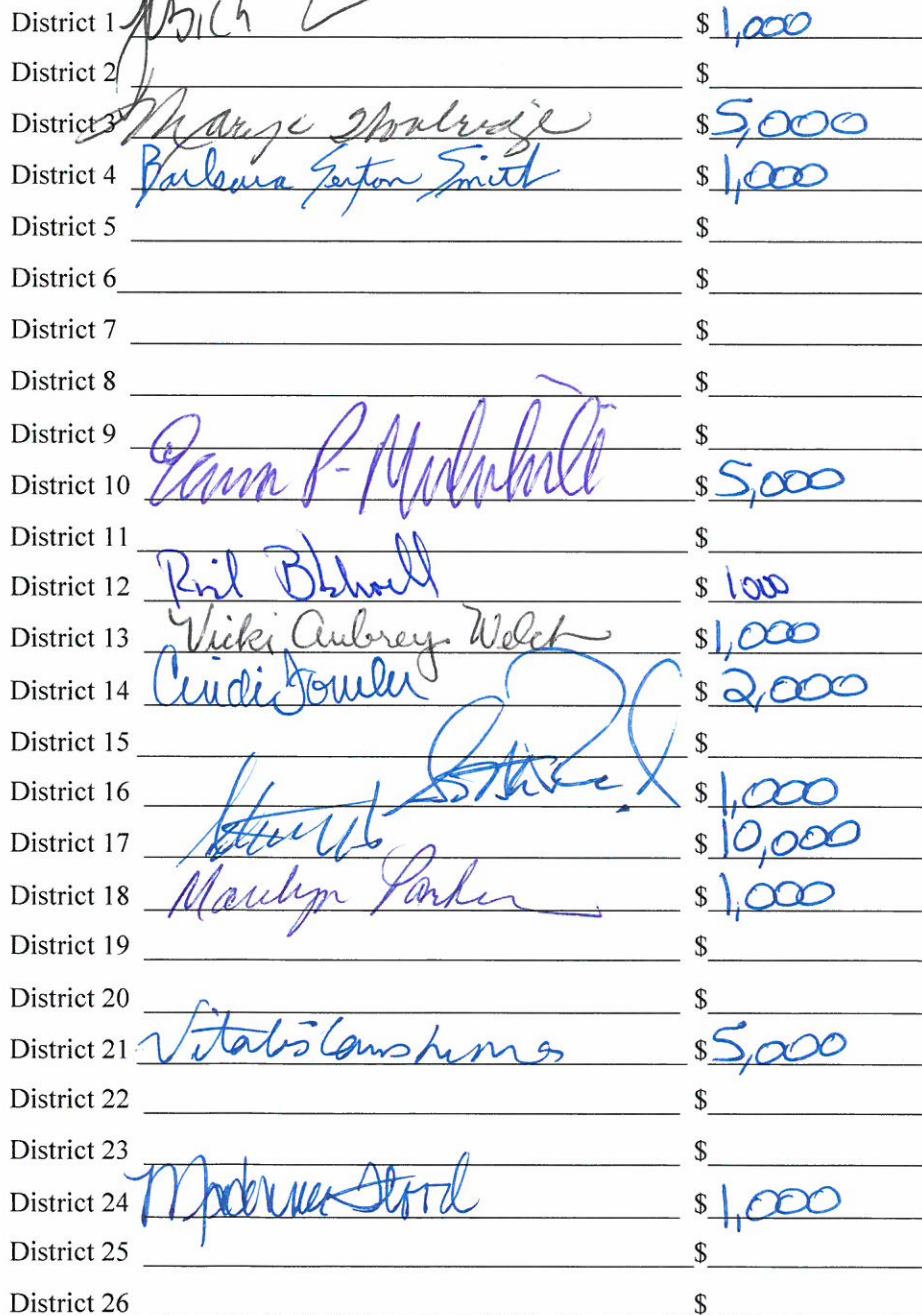 District 1 $ 1,000
District 2 $
District 3 $ 5,000
District 4 Barbara Sexton Smith $ 1,000
District 5 $
District 6 $
District 7 $
District 8 $
District 9 $
District 10 $ 5,000
District 11 $
District 12 $ 1000
District 13 Vicki Aubrey Welch $ 1,000
District 14 Cindi Fowler $ 2,000
District 15 $
District 16 $ 1,000
District 17 $ 10,000
District 18 Marilyn Parker $ 1,000
District 19 $
District 20 $
District 21 $ 5,000
District 22 $
District 23 $
District 24 $ 1,000
District 25 $
District 26 $